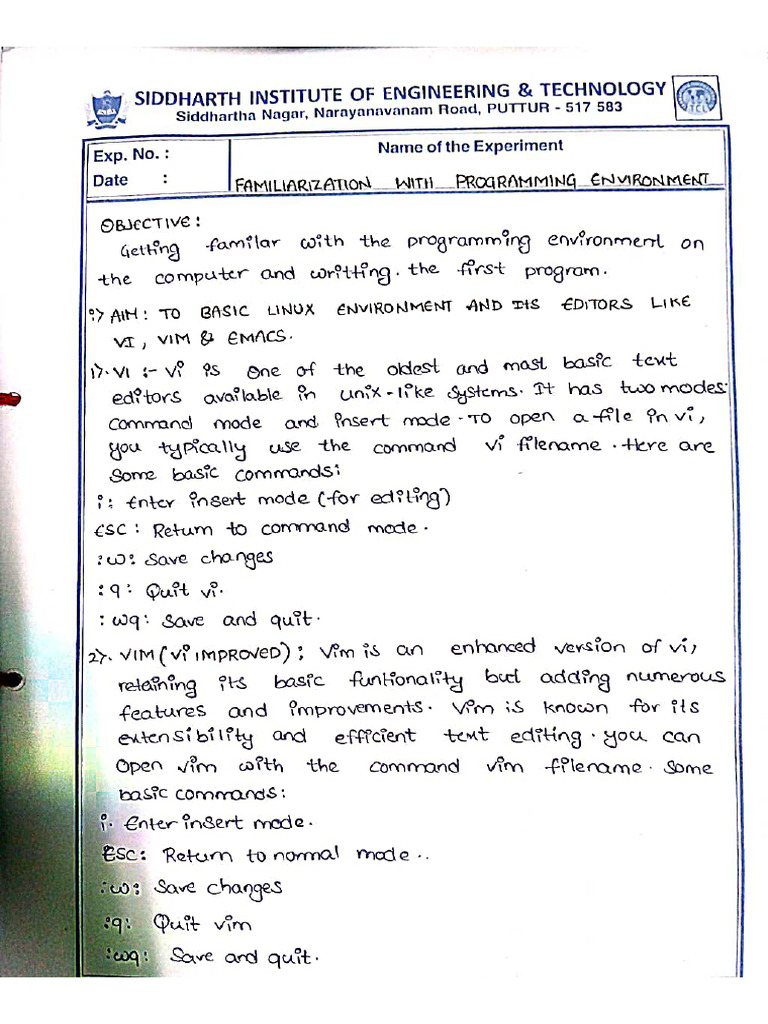 SIDDHARTH INSTITUTE OF ENGINEERING & TECHNOLOGY
Siddhartha Nagar, Narayanavanam Road, PUTTUR - 517 583
Exp. No. :
Name of the Experiment
Date :
FAMILIARIZATION WITH PROGRAMMING ENVIRONMENT
OBJECTIVE:
Getting familar with the programming environment on
the computer and writting. the first program.
i) AIM: TO BASIC LINUX ENVIRONMENT AND ITS EDITORS LIKE
VI, VIM & EMACS.
1). VI :- Vi is one of the oldest and most basic text
editors available in unix-like systems. It has two modes:
command mode and insert mode. To open a file in vi,
you typically use the command vi filename. Here are
some basic commands:
i: Enter insert mode (for editing)
ESC: Return to command mode.
:w: Save changes
:q: Quit vi.
:wq: Save and quit.
2). VIM (Vi IMPROVED): Vim is an enhanced version of vi,
retaining its basic funtionality but adding numerous
features and improvements. Vim is known for its
extensibility and efficient text editing. you can
open vim with the command vim filename. Some
basic commands:
i. Enter insert mode.
ESC: Return to normal mode..
:w: Save changes
:q: Quit vim
:wq: Save and quit.